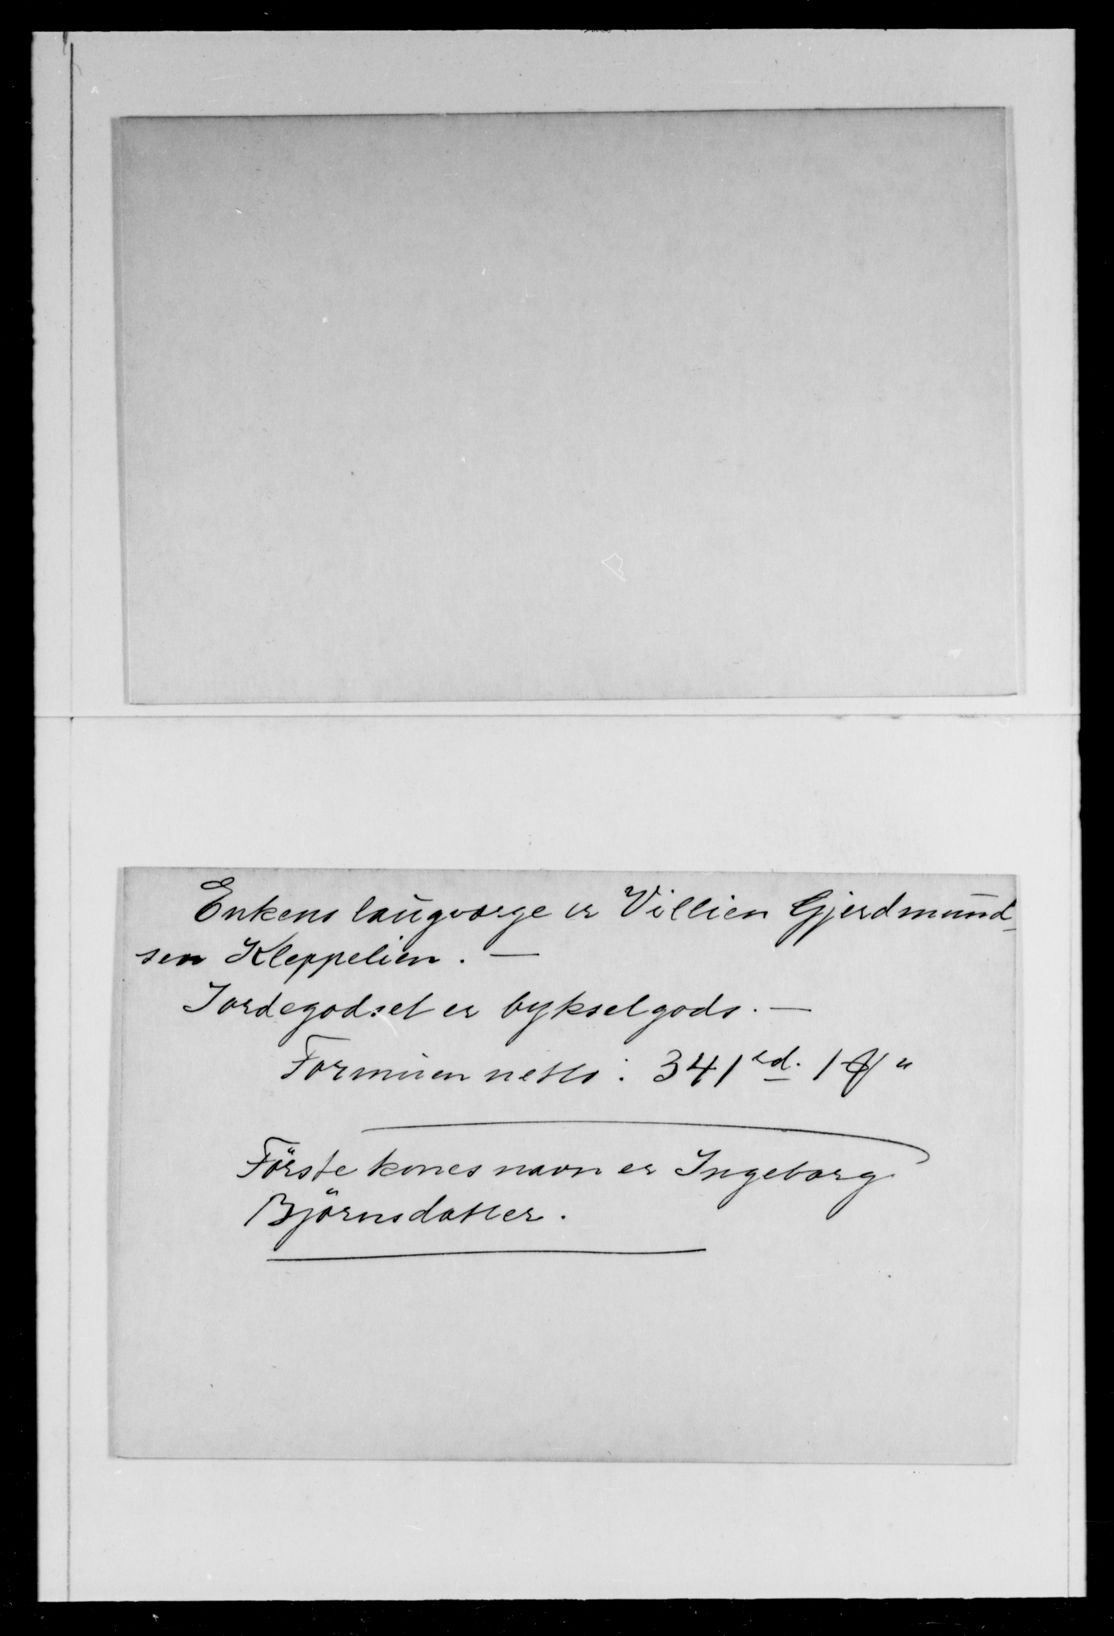 Enkens laugværge er Villien Gjerdmund-
sen Kleppelien. —
Jordegodset er bykselgods. —
Formuen netto: 341 rd. 1 ₰ "
Förste kones navn er Ingeborg
Björnsdatter.